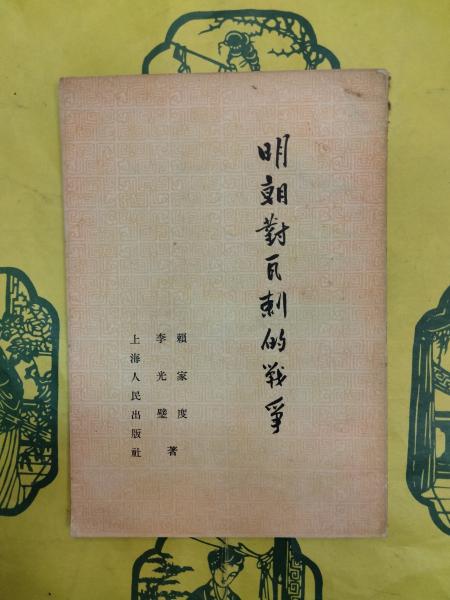 明朝對瓦剌的戰爭
賴家度
李光璧 著
上海人民出版社